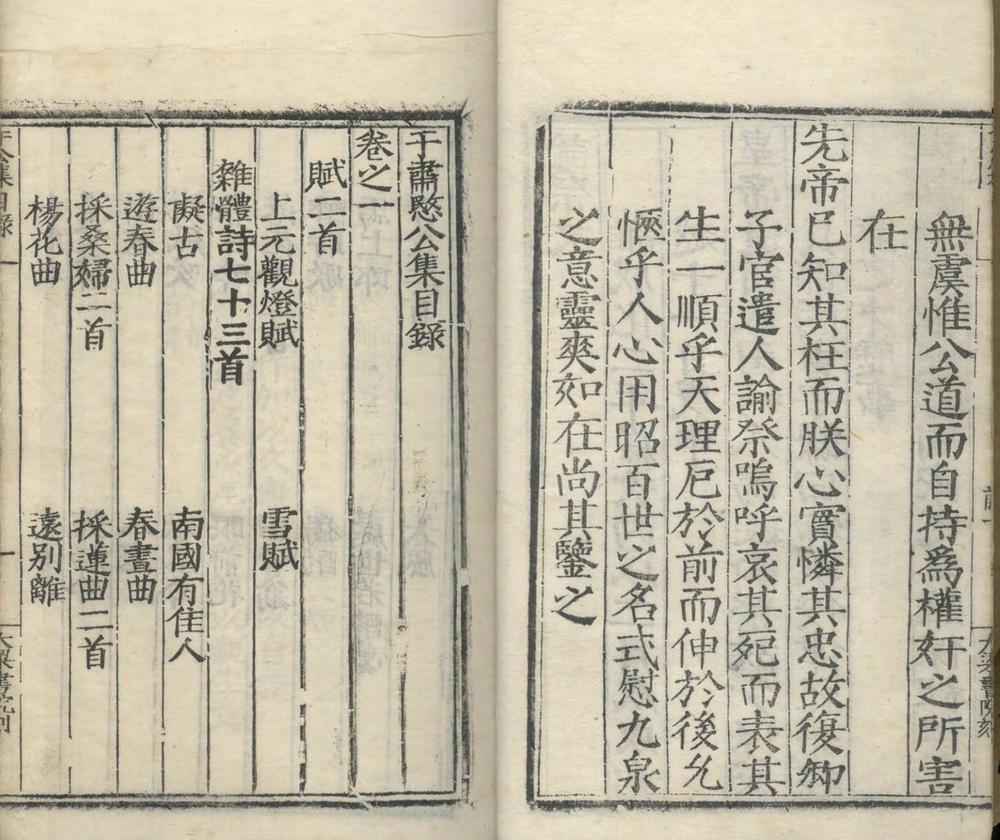 無虞惟公道而自持爲權奸之所害
在
先帝已知其枉而朕心實憐其忠故復卿
子官遣人諭祭嗚呼哀其死而表其
生一順乎天理厄於前而伸於後允
愜乎人心用昭百世之名式慰九泉
之意靈爽如在尚其鑒之
于肅愍公集目錄
卷之一
賦二首
上元觀燈賦 雪賦
雜體詩七十三首
擬古 南國有佳人
遊春曲 春晝曲
採桑婦二首 採蓮曲二首
楊花曲 遠別離